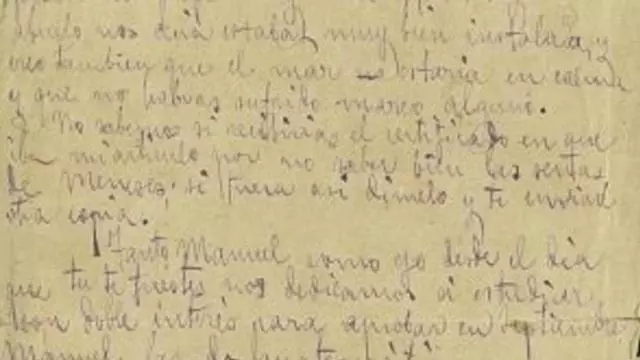 abuelo nos decía estabas muy bien instalada, y
creo tambien que el mar estaria en calma
y que no habras sufrido mareo alguno.
No sabemos si recibirias el certificado en que
iba mi articulo por no saber bien las señas
de Meneses; si fuera asi dimelo y te enviaré
otra copia.
Tanto Manuel como yo desde el dia
que tu te fuistes nos dedicamos a estudiar
con doble interés para aprobar en septiembre
Manuel